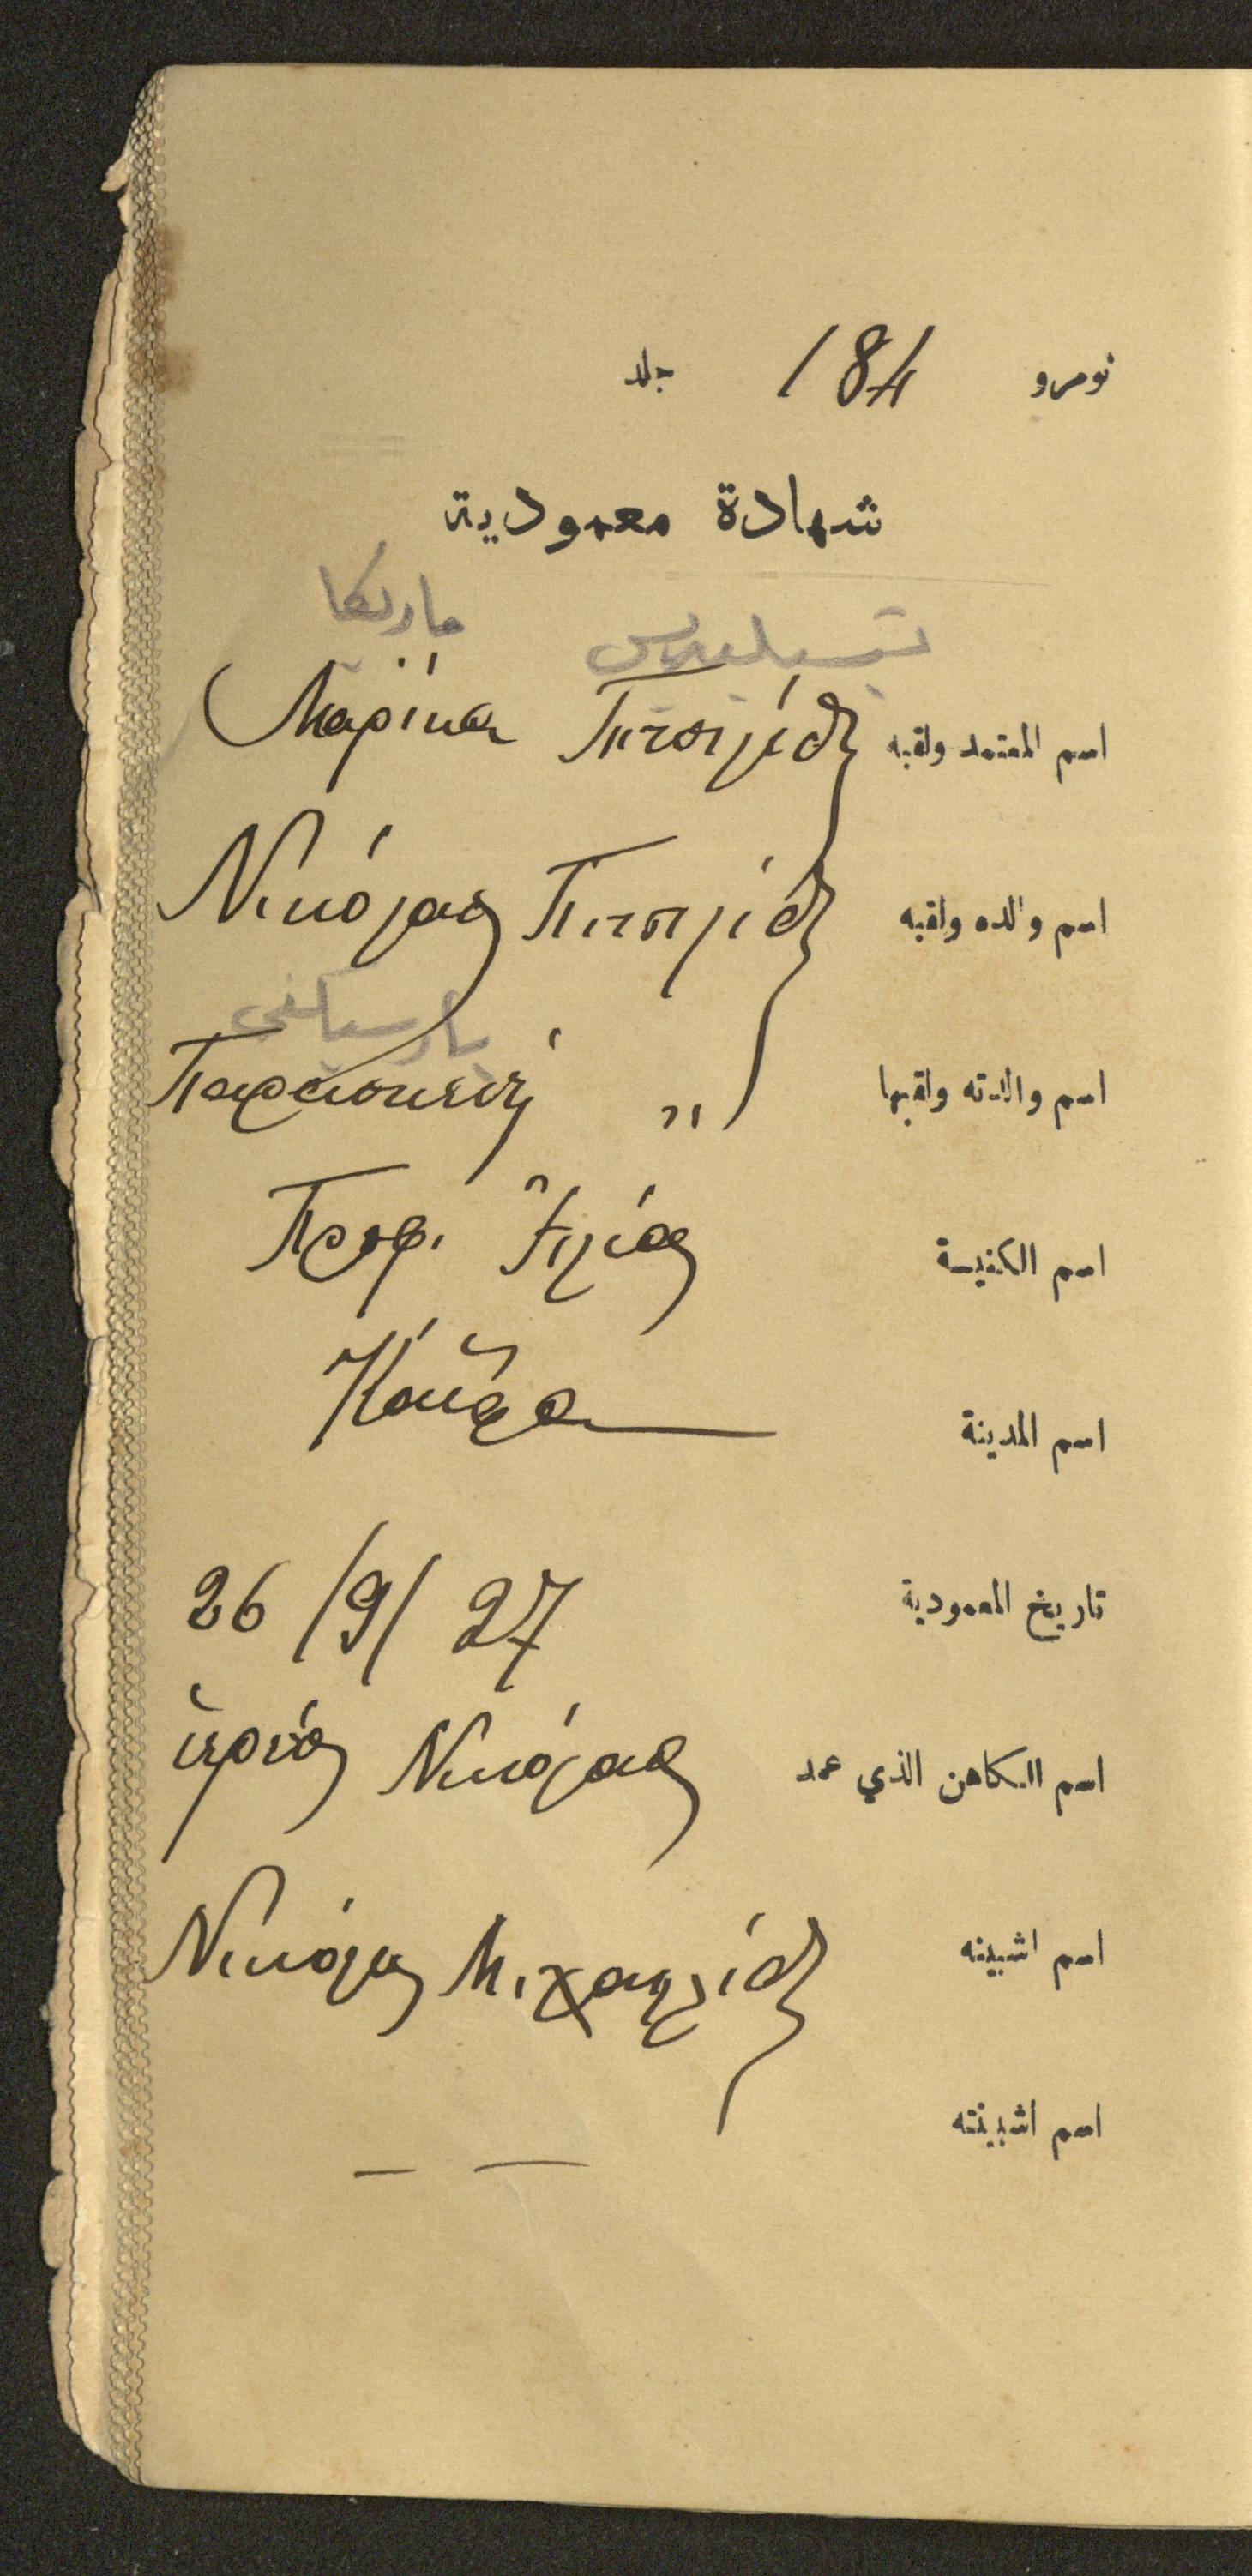 نومرو 184 جلد
شهادة معمودية
ماريكا
اسم المعتمد ولقبه Μαρίκα
اسم والده ولقبه Νικόλαος
اسم والدته ولقبها Παρασκευή "
اسم الكنيسة Προφ. Ἠλίας
اسم المدينة Κάϊρο
تاريخ المعمودية 26/9/27
اسم الكاهن الذي عمد ἱερεύς Νικόλαος
اسم اشبينه Νικόλαος Μιχαηλίδης
اسم اشبينته — —